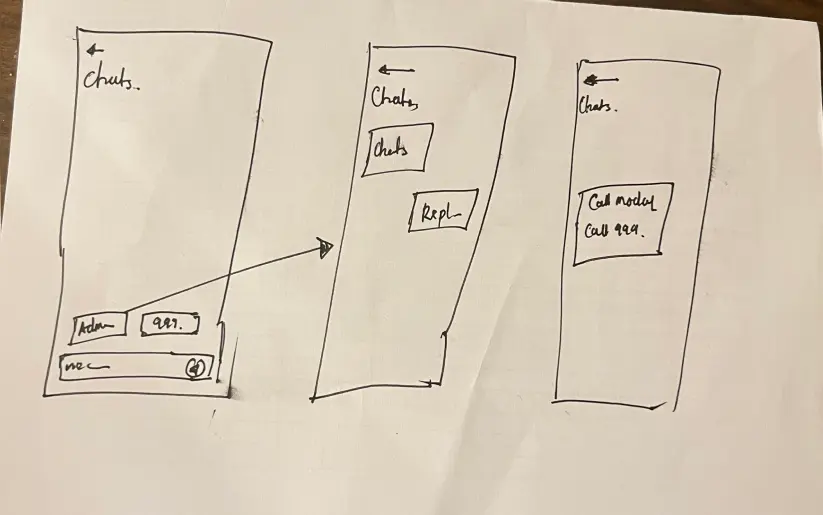 Chats.
Admn
999.
Chats
Chats
Repl
Chats.
Call modal
Call 999.